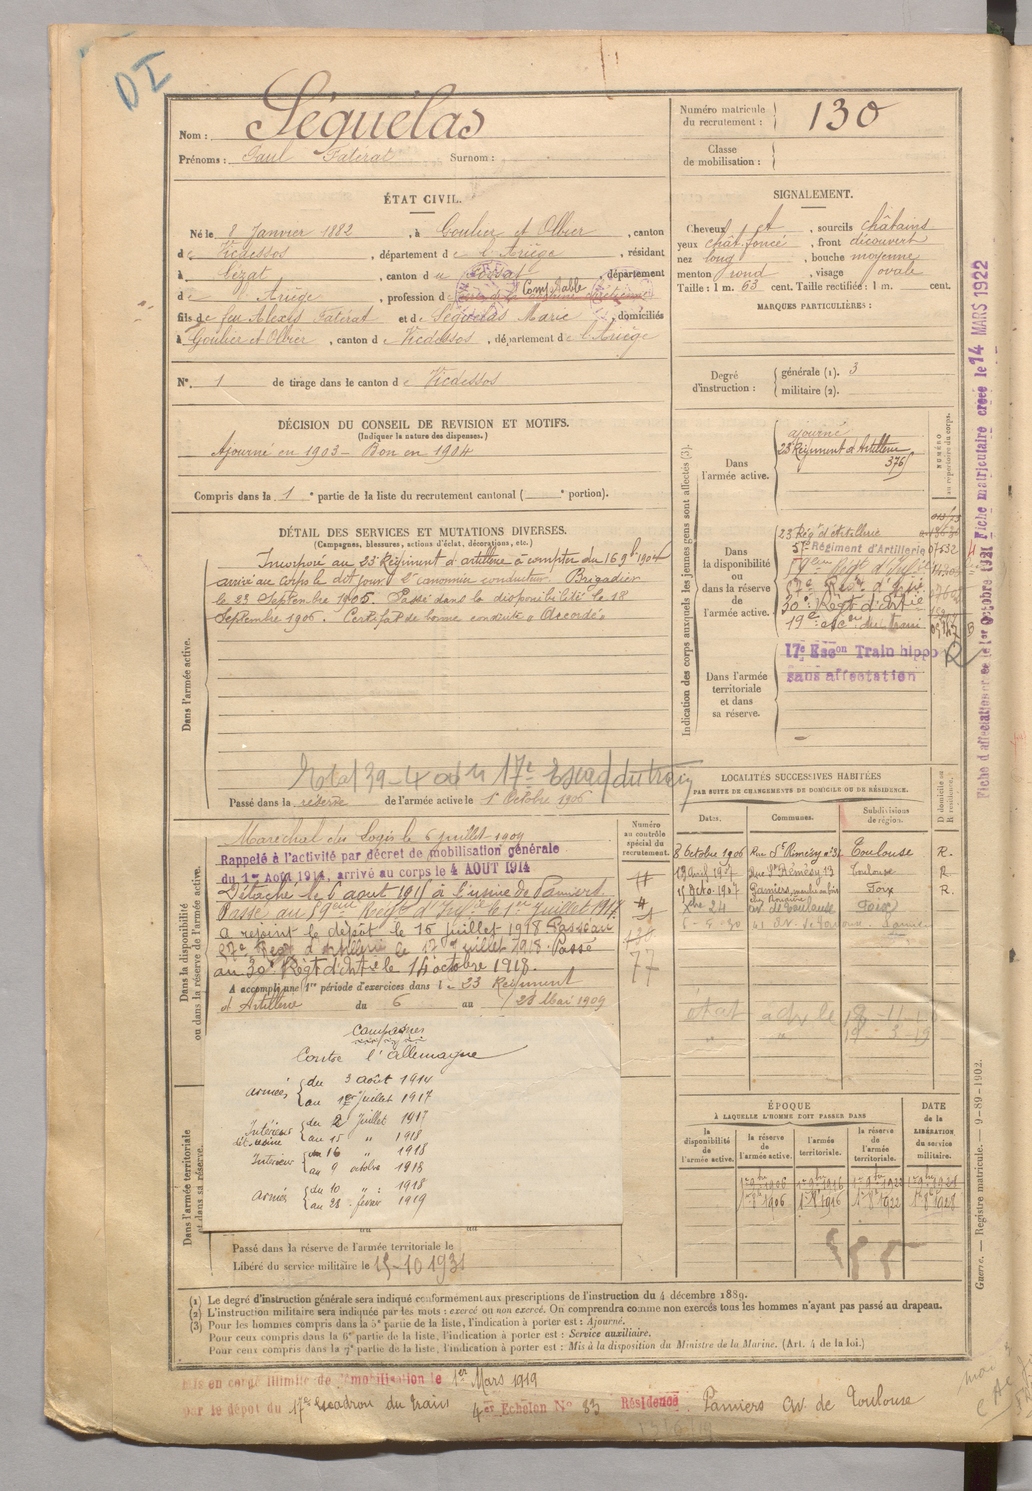 DI
Nom : Séguélas
Prénoms : Paul Fatérat Surnom :
Numéro matricule du recrutement : 130
Classe de mobilisation :
ÉTAT CIVIL.
Né le 8 Janvier 1882, à Goulier et Olbier, canton
de Vicdessos, département de l'Ariège, résidant
à Lézat, canton du Fossat, département
d Ariège, profession d Comptable
fils de feu Alexis Fatérat et de Séguélas Marie, domiciliés
à Goulier et Olbier, canton de Vicdessos, département de l'Ariège
N° 1 de tirage dans le canton de Vicdessos
SIGNALEMENT.
Cheveux et, sourcils châtains
yeux chât. foncé, front découvert
nez long, bouche moyenne
menton rond, visage ovale
Taille : 1 m. 63 cent. Taille rectifiée : 1 m. cent.
MARQUES PARTICULIÈRES :
Degré d'instruction : générale (1). 3
militaire (2).
DÉCISION DU CONSEIL DE REVISION ET MOTIFS.
(Indiquer la nature des dispenses.)
Ajourné en 1903 - Bon en 1904
Compris dans la 1e partie de la liste du recrutement cantonal ( e portion).
DÉTAIL DES SERVICES ET MUTATIONS DIVERSES.
(Campagnes, blessures, actions d'éclat, décorations, etc.)
Dans l'armée active.
Incorporé au 23 Régiment d'artillerie à compter du 16 9bre 1904
arrivé au corps le dit jour 2e canonnier conducteur. Brigadier
le 23 Septembre 1905. Passé dans la disponibilité le 18
Septembre 1906. Certificat de bonne conduite "Accordé"
17e Escad du train
Passé dans la réserve de l'armée active le 1 Octobre 1906
Indication des corps auxquels les jeunes gens sont affectés (3).
NUMÉRO au répertoire du corps.
Dans l'armée active.
ajourné
23 Régiment d'Artillerie
376
Dans la disponibilité ou dans la réserve de l'armée active.
23 Régt d'Artillerie
57e Régiment d'Artillerie 07532
30e Régt d'Artie
19e esc. du train
Dans l'armée territoriale et dans sa réserve.
17e Escon Train hippo
sans affectation
Fiche matriculaire créée le 14 MARS 1922
LOCALITÉS SUCCESSIVES HABITÉES
PAR SUITE DE CHANGEMENTS DE DOMICILE OU DE RÉSIDENCE.
Dates. Communes. Subdivisions de région. D domicile ou R résidence.
8 Octobre 1906 Rue St Rémésy n° 31 Toulouse R.
19 avril 1907 Rue St Rémésy 13 Toulouse R.
15 Octo. 1907 Pamiers Foix R.
Xbre 24 av. de Toulouse Foix
Dans la disponibilité ou dans la réserve de l'armée active.
Maréchal des Logis le 6 juillet 1909
Rappelé à l'activité par décret de mobilisation générale
du 1er Août 1914, arrivé au corps le 4 AOUT 1914
Détaché le 6 août 1915 à l'usine de Pamiers
a rejoint le dépôt le 16 juillet 1918 Passé au
Rég d'Artillerie le 17 juillet 1918. Passé
au 30e Régt d'artie le 14 octobre 1918.
A accompli une 1re période d'exercices dans le 23 Régiment
d'Artillerie du 6 au 28 Mai 1909
Numéro au contrôle spécial du recrutement.
77
Campagnes
Contre l'Allemagne
Armées du 3 août 1914
au 1er Juillet 1917
Intérieur du 2 Juillet 1917
au 15 " 1918
Intérieur du 16 " 1918
au 9 octobre 1918
Armées du 10 " 1918
au 28 février 1919
Dans l'armée territoriale et dans sa réserve.
Passé dans la réserve de l'armée territoriale le
Libéré du service militaire le 15-10-1931
ÉPOQUE
À LAQUELLE L'HOMME DOIT PASSER DANS
la disponibilité de l'armée active. la réserve de l'armée active. l'armée territoriale. la réserve de l'armée territoriale.
DATE de la LIBÉRATION du service militaire.
(1) Le degré d'instruction générale sera indiqué conformément aux prescriptions de l'instruction du 4 décembre 1889.
(2) L'instruction militaire sera indiquée par les mots : exercé ou non exercé. On comprendra comme non exercés tous les hommes n'ayant pas passé au drapeau.
(3) Pour les hommes compris dans la 5e partie de la liste, l'indication à porter est : Ajourné.
Pour ceux compris dans la 6e partie de la liste, l'indication à porter est : Service auxiliaire.
Pour ceux compris dans la 7e partie de la liste, l'indication à porter est : Mis à la disposition du Ministre de la Marine. (Art. 4 de la loi.)
Guerre. — Registre matricule. — 9-89-1902.
Mis en congé illimité de démobilisation le 1er Mars 1919
par le dépôt du 17e Escadron du Train 4er Échelon N° 83 Résidence Pamiers av. de Toulouse